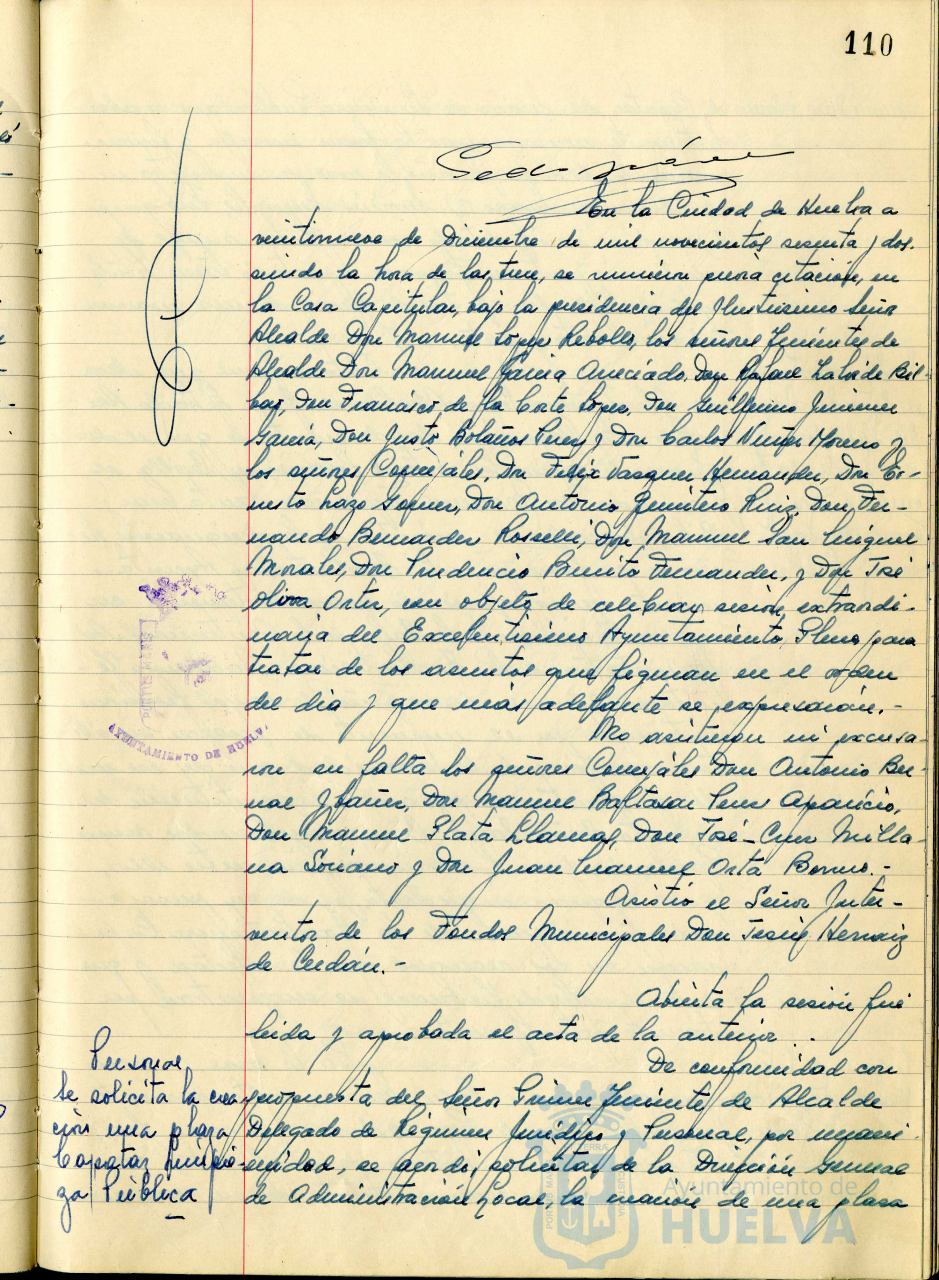 110
En la Ciudad de Huelva a
veintinueve de Diciembre de mil novecientos sesenta y dos.
siendo la hora de las trece, se reunieron previa citación, en
la Casa Capitular, bajo la presidencia del Ilustrisimo Señor
Alcalde Don Manuel López Rebollo, los señores Tenientes de
Alcalde Don Manuel Garcia Aneciado, Don Rafael de Bil-
bao, Don Francisco de la Corte López, Don Guillermo Jimenez
García, Don Justo Bolaños Perez y Don Carlos Nuñez Moreno y
los señores Concejáles, Don Felix Vazquez Hernandez, Don Er-
nesto Lazo Gomez, Don Antonio Quintero Ruiz, Don Fer-
nando Bernardez Rosselli, Don Manuel San Miguel
Morales, Don Prudencio Benito Fernandez, y Don José
Oliva Ortiz, con objeto de celebrar sesión extraordi-
naria del Excelentisimo Ayuntamiento Pleno para
tratar de los asuntos que figuran en el orden
del dia y que más adelante se expresarán.-
No asistieron ni excusa-
ron su falta los señores Concejáles Don Antonio Ber-
nal Ybañez, Don Manuel Baltasar Perez Aparicio,
Don Manuel Plata Llamas, Don José-Cruz Milla-
na Soriano y Don Juan Manuel Orta Borrero.-
Asistió el Señor Inter-
ventor de los Fondos Municipales Don Jesús Hernaiz
de Cerdán.-
Abierta la sesión fué
leida y aprobada el acta de la anterior.
De conformidad con
propuesta del Señor Primer Teniente de Alcalde
Delegado de Régimen Jurídico y Personal, por unani-
midad, se acordó, solicitar de la Dirección General
de Administración Local, la creación de una plaza
Personal
Se solicita la crea-
ción una plaza
Capataz Limpie-
za Pública
AYUNTAMIENTO DE HUELVA
Ayuntamiento de
HUELVA